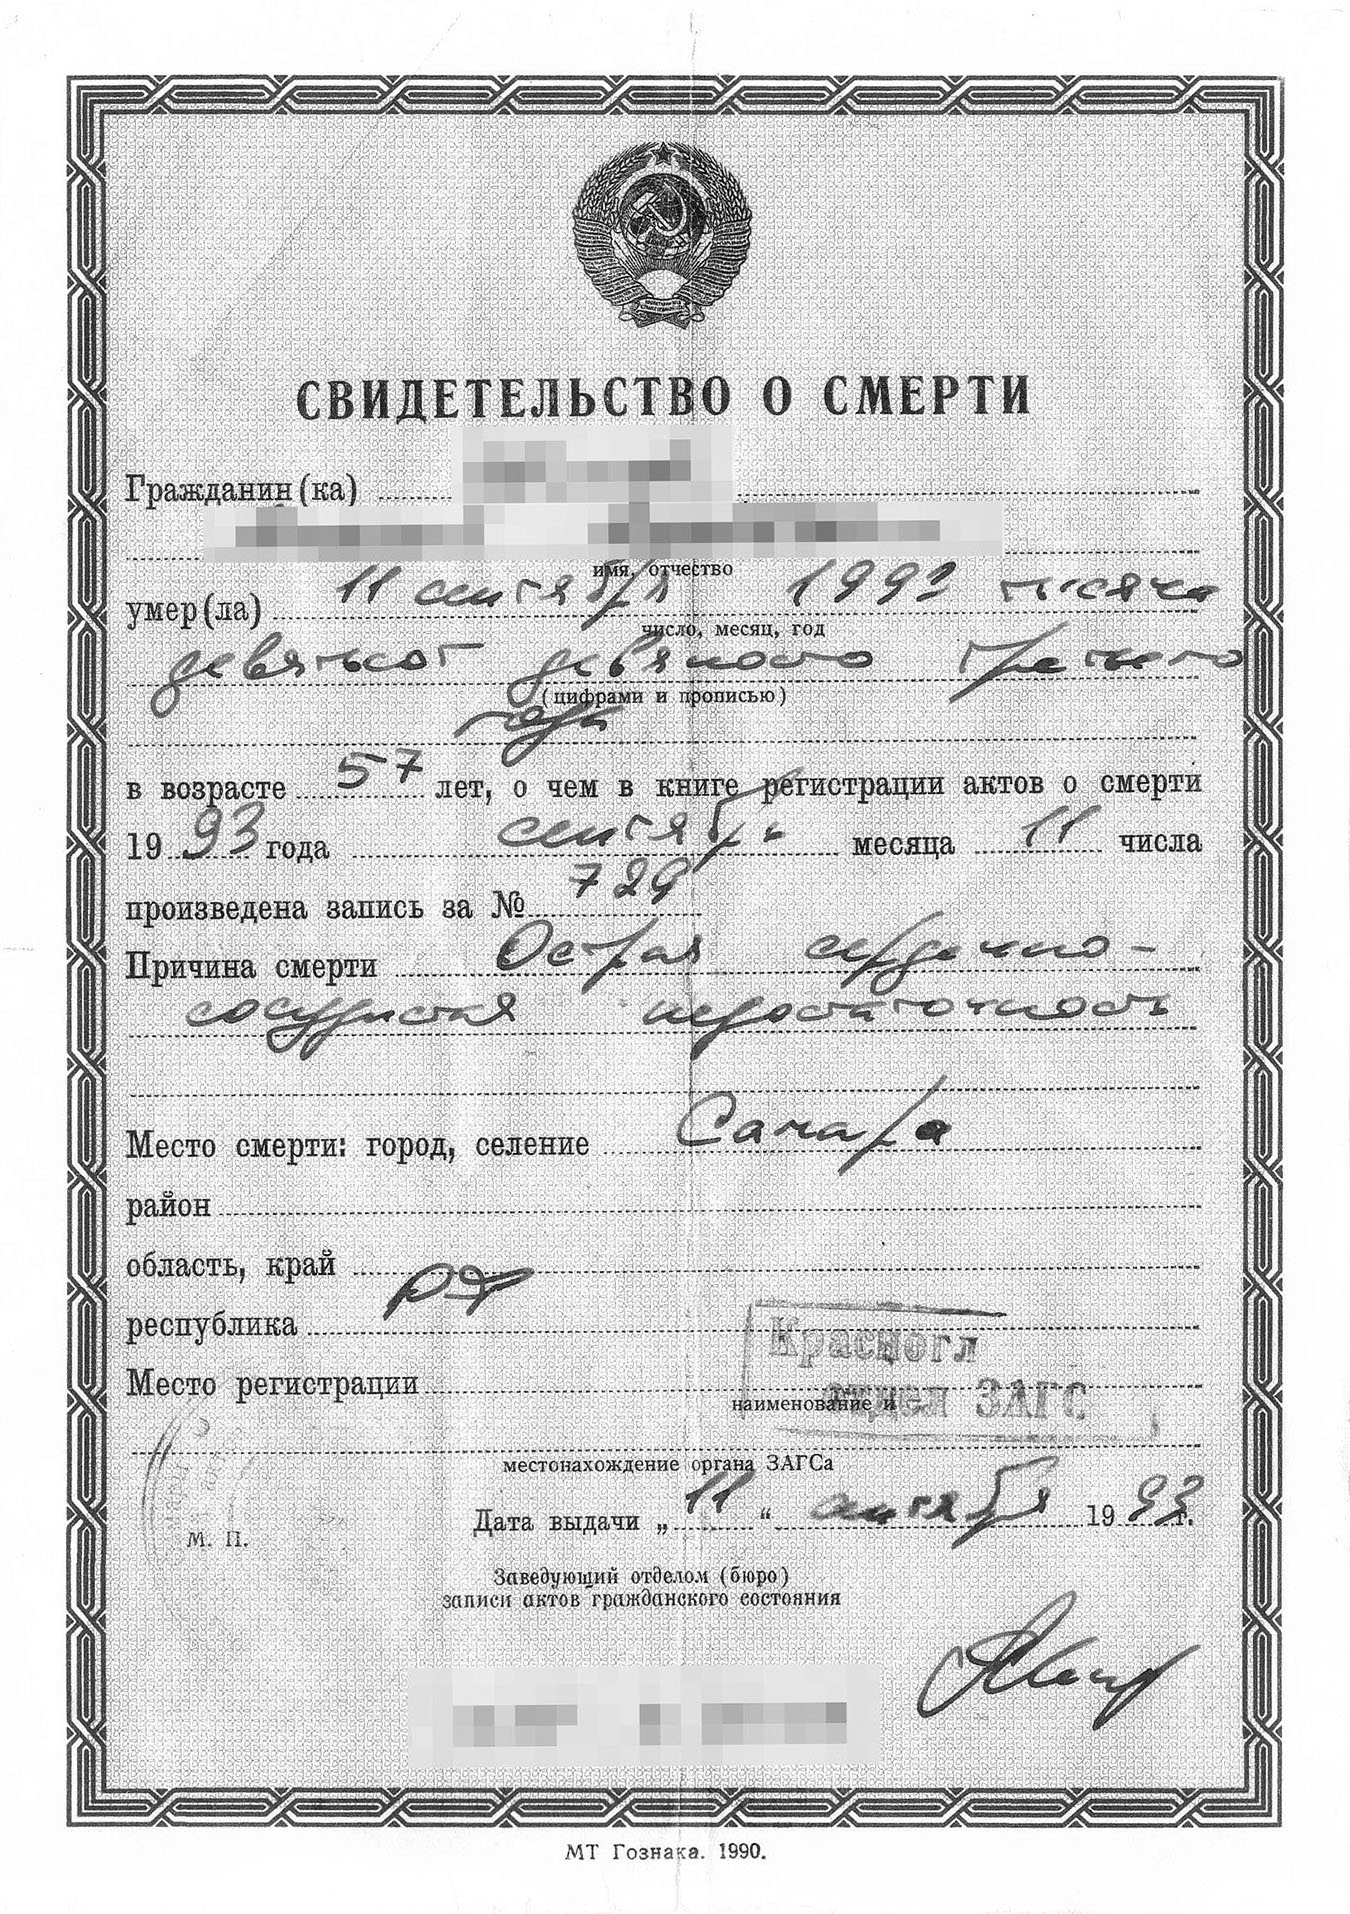 СВИДЕТЕЛЬСТВО О СМЕРТИ
Гражданин(ка)
имя, отчество
умер(ла) 11 сентября 1993 тысяча
число, месяц, год
девятьсот девяносто третьего
(цифрами и прописью)
года
в возрасте 57 лет, о чем в книге регистрации актов о смерти
19 93 года сентября месяца 11 числа
произведена запись за № 729
Причина смерти Острая сердечно-
сосудистая недостаточность
Место смерти: город, селение Самара
район
область, край
республика РФ
Место регистрации
Красногл
отдел ЗАГС
наименование и
местонахождение органа ЗАГСа
Дата выдачи „ 11 “ сентября 19 93 г.
М. П.
Заведующий отделом (бюро)
записи актов гражданского состояния
МТ Гознака. 1990.